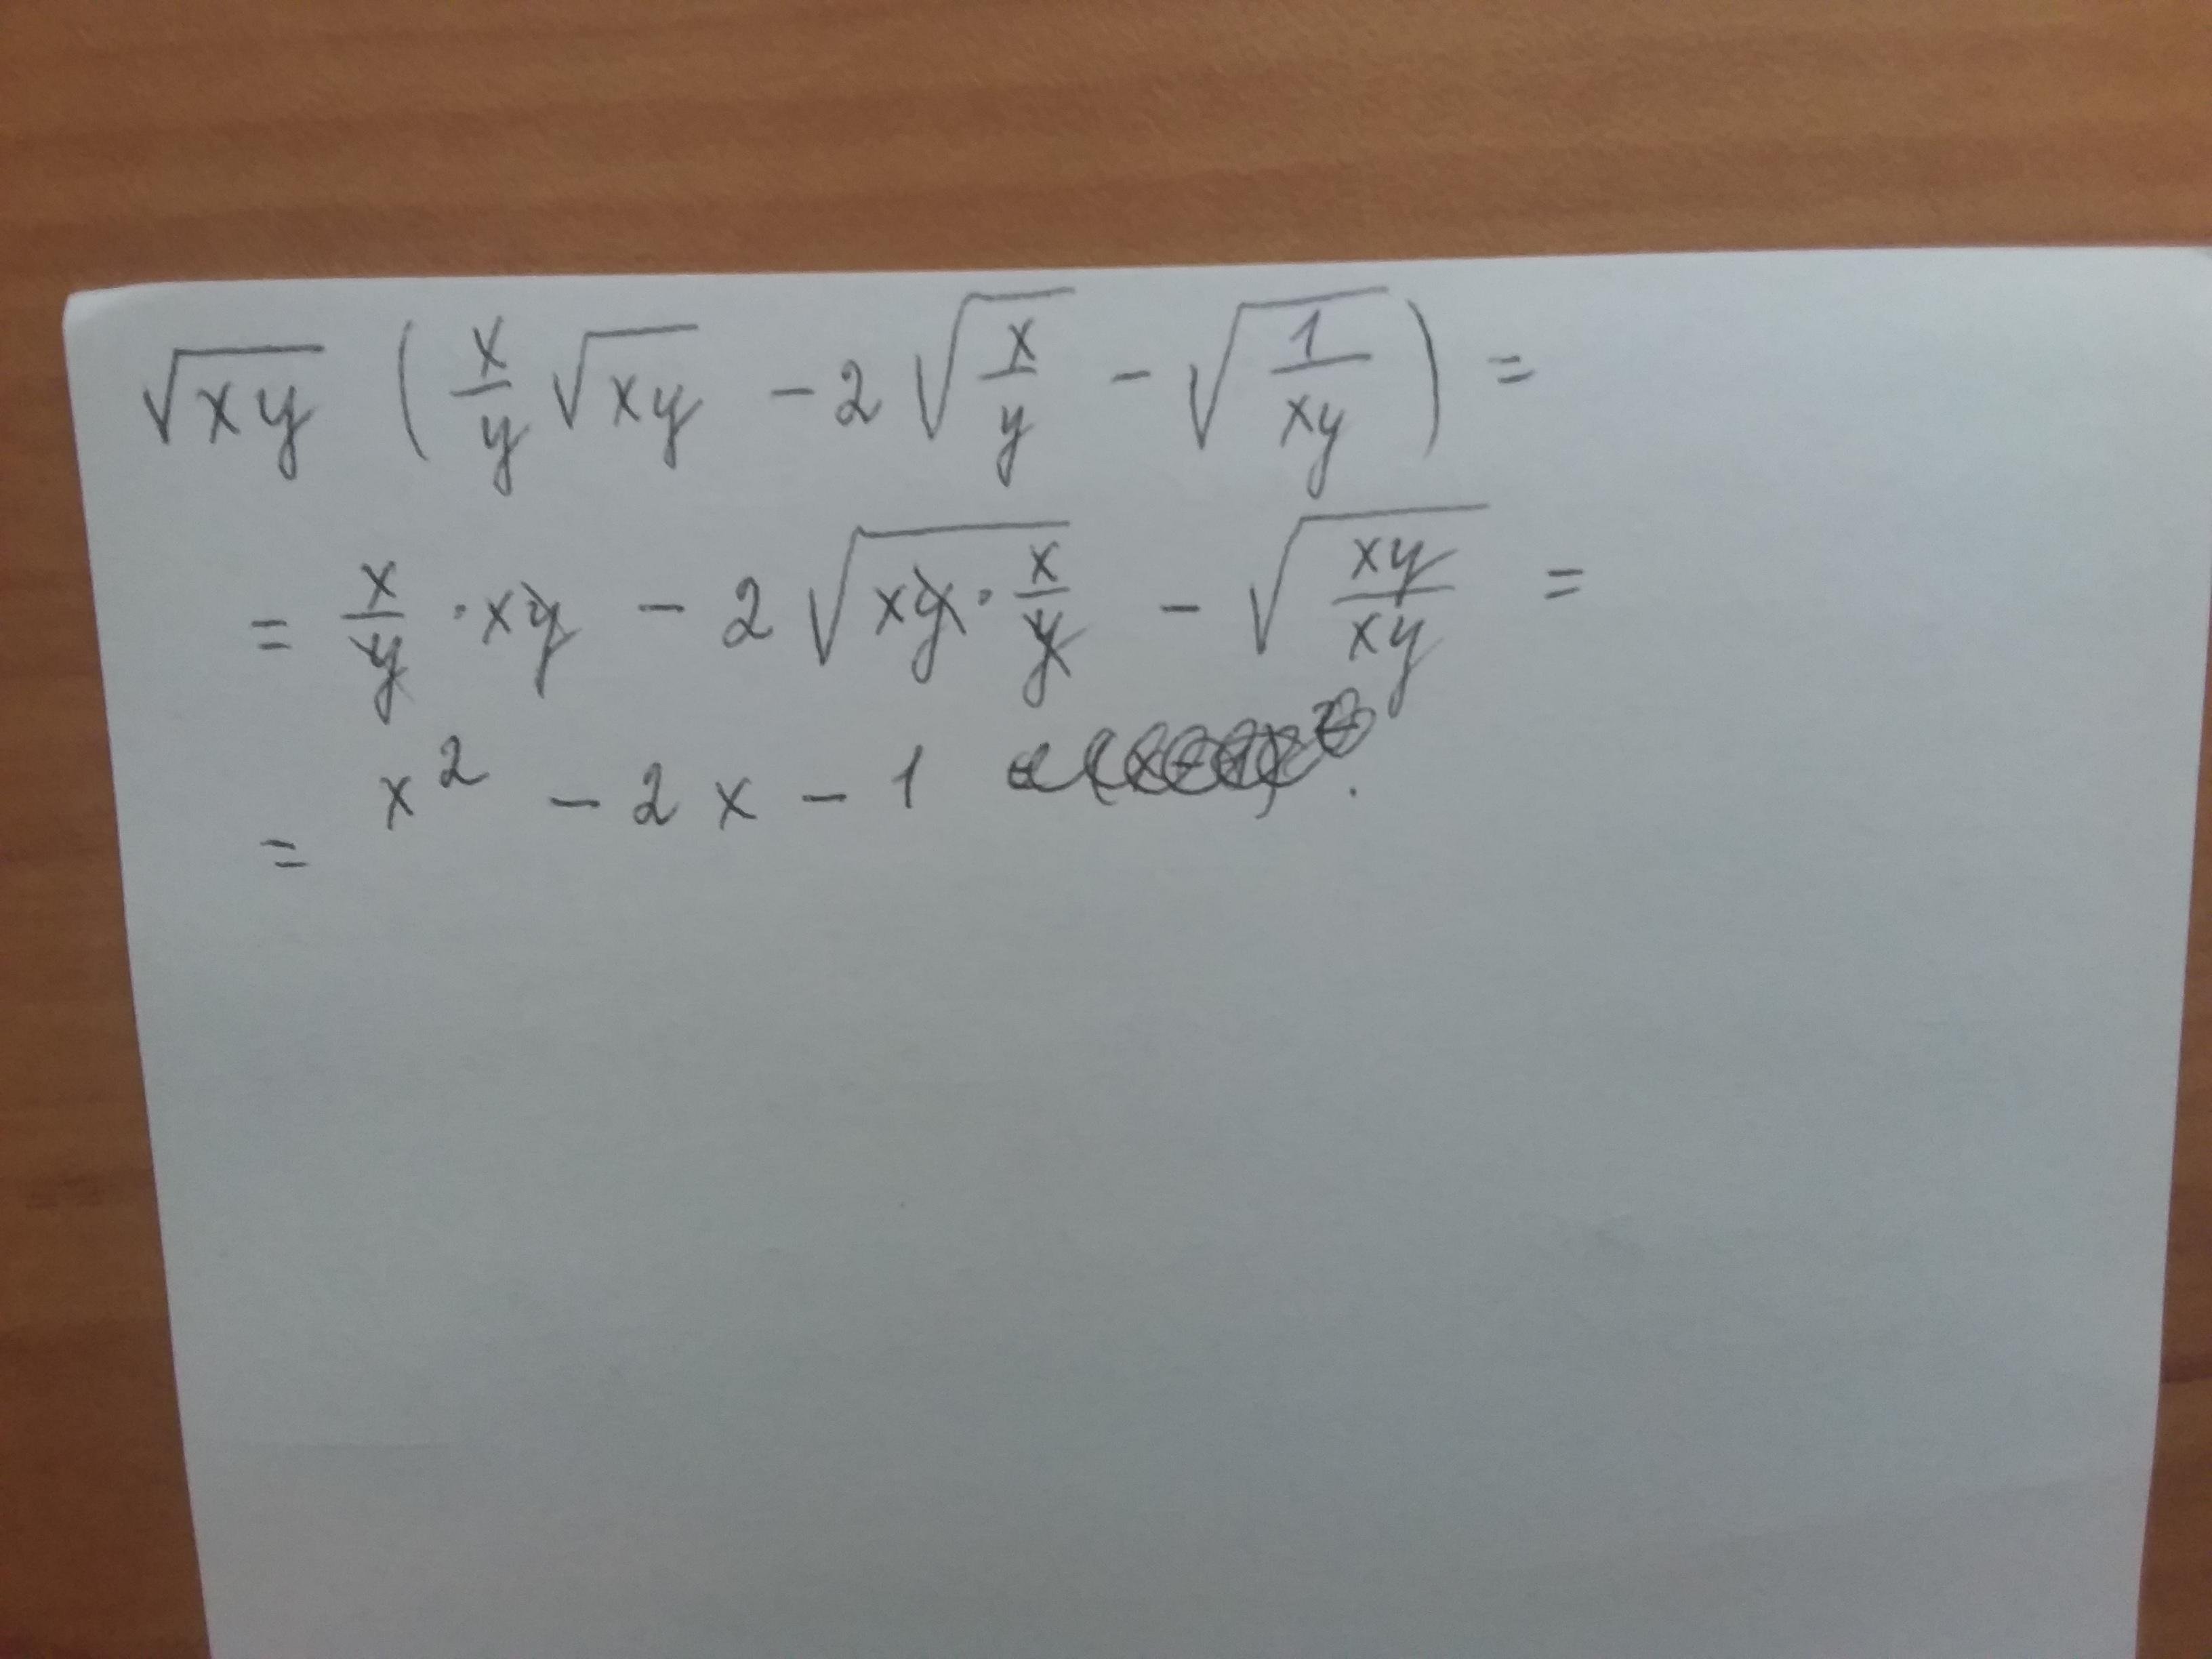 √xy ( x/y √xy - 2 √x/y - √1/xy ) =
= x/y · xy - 2 √xy · x/y - √xy/xy =
= x² - 2x - 1 .